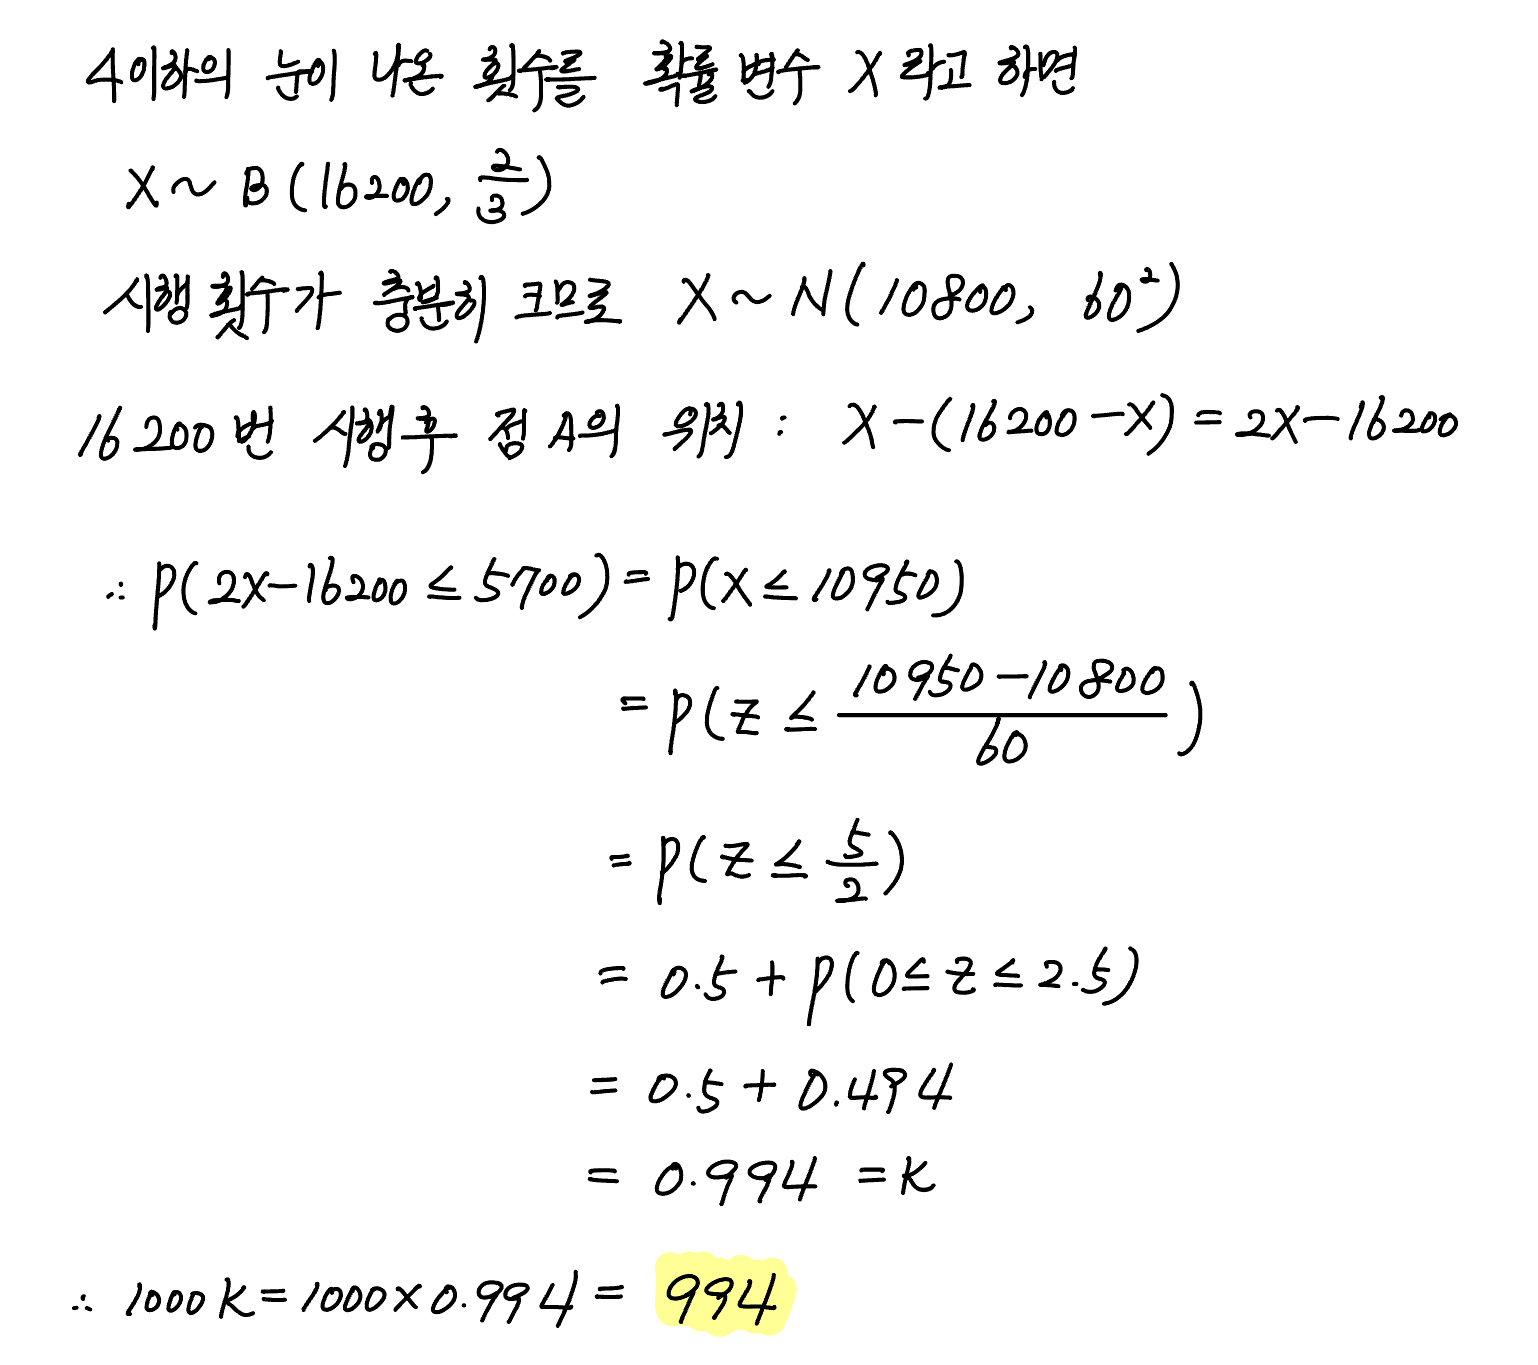 4이하의 눈이 나온 횟수를 확률 변수 X 라고 하면
X ~ B(16200, 2/3)
시행 횟수가 충분히 크므로 X ~ N(10800, 60²)
16200번 시행 후 점 A의 위치 : X-(16200-X) = 2X-16200
∴ P(2X-16200 ≤ 5700) = P(X ≤ 10950)
= P(Z ≤ (10950-10800)/60)
= P(Z ≤ 5/2)
= 0.5 + P(0 ≤ Z ≤ 2.5)
= 0.5 + 0.494
= 0.994 = K
∴ 1000K = 1000×0.994 = 994